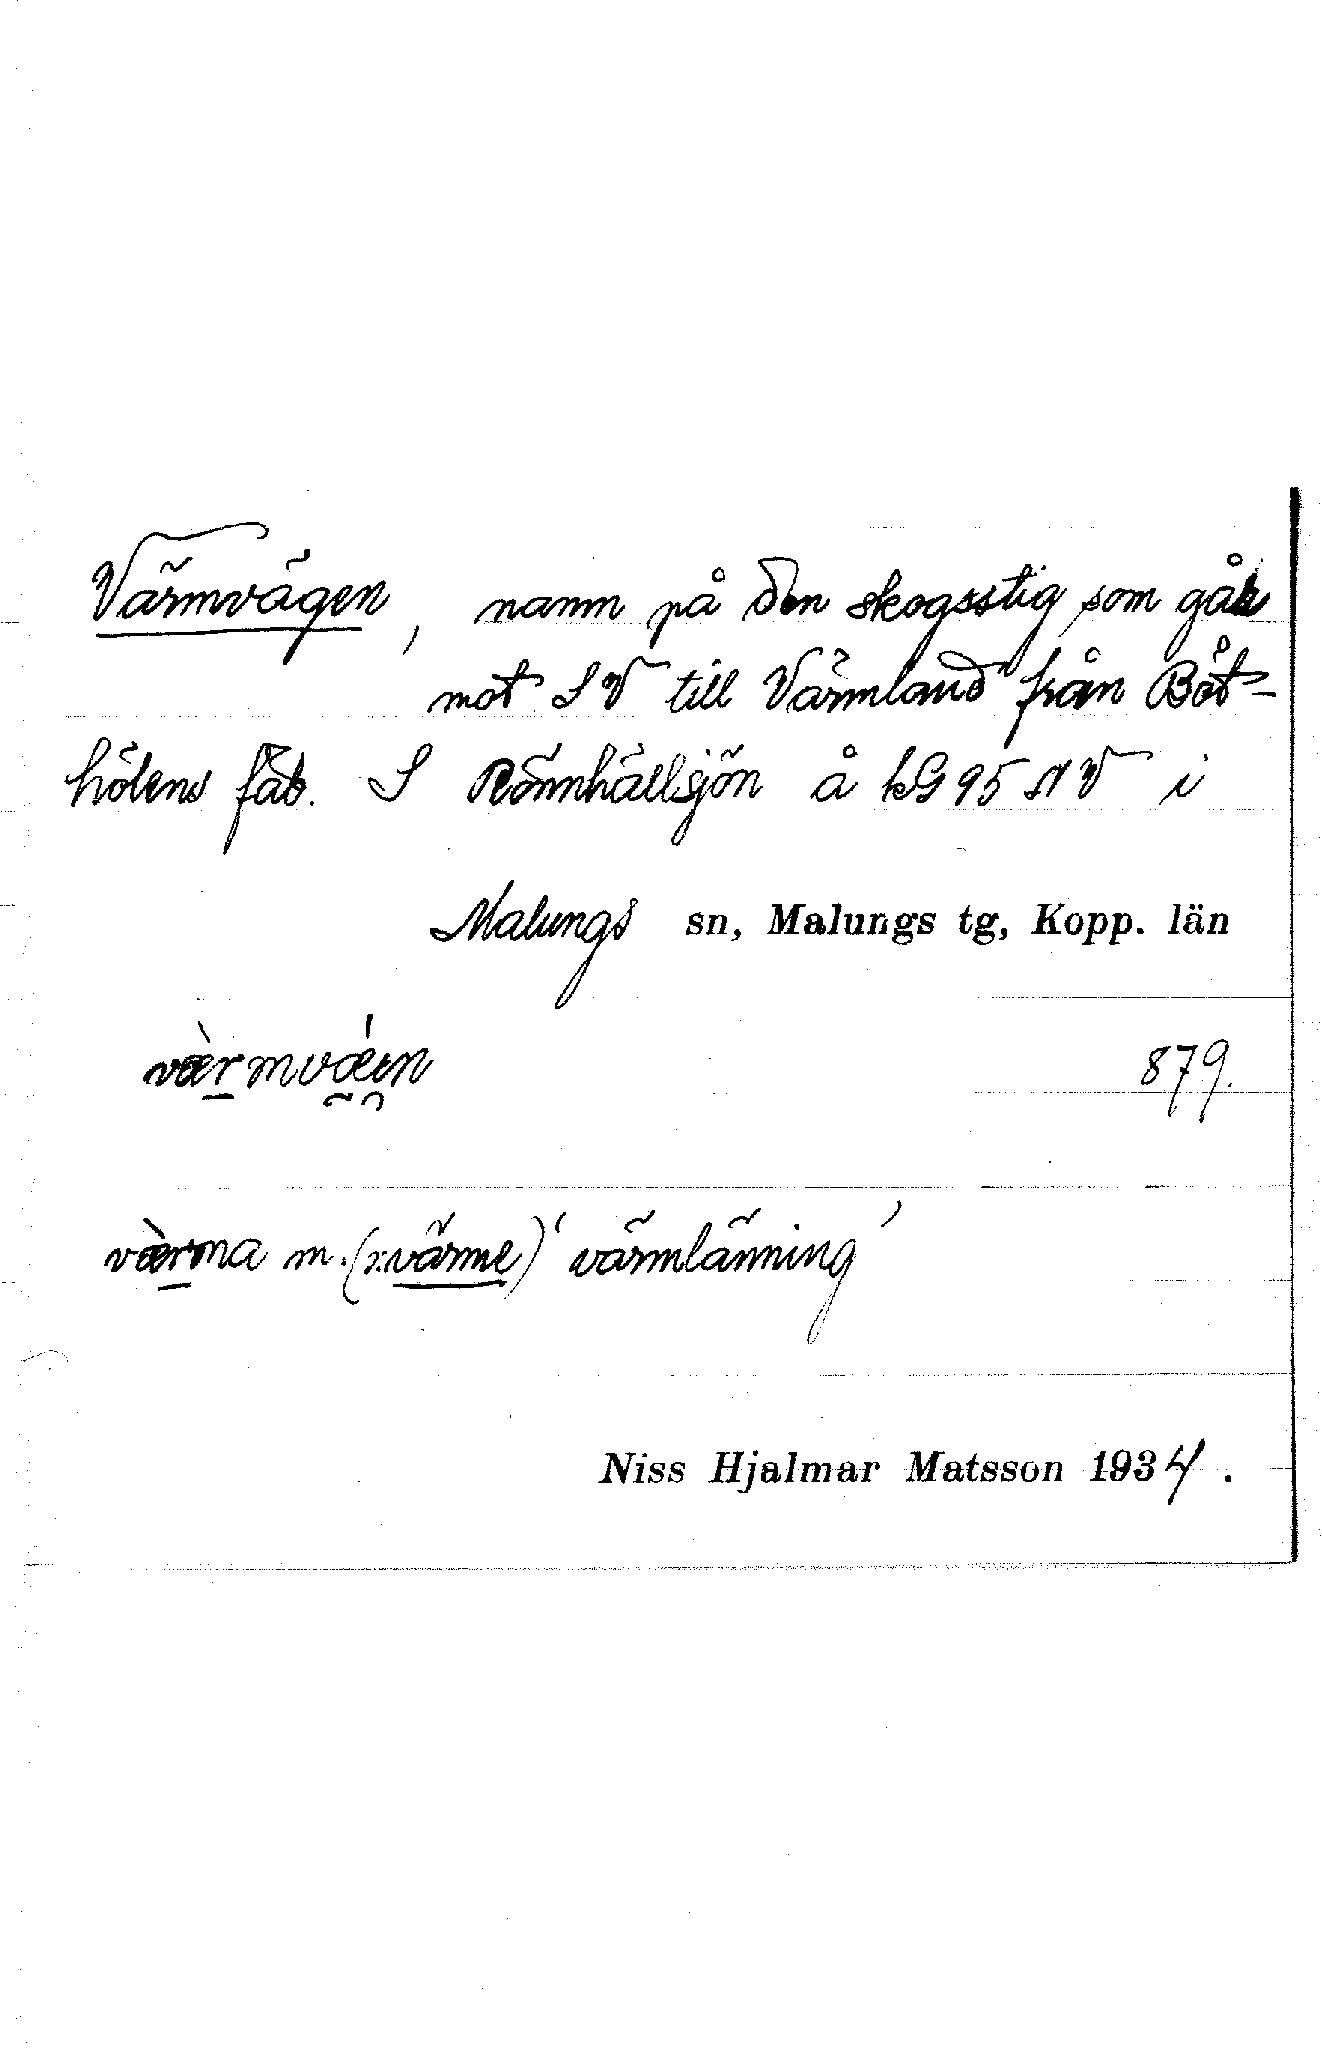 Värmvägen, namn på den skogsstig som går
mot SV till Värmland från Båt-
hölens fäb. S Rönnhällsjön å kG 95 NV i
Malungs sn, Malungs tg, Kopp. län
væ̀rmvǽi̯n 879.
væ̀rma m. (: värme) ‘värmlänning’
Niss Hjalmar Matsson 1934.